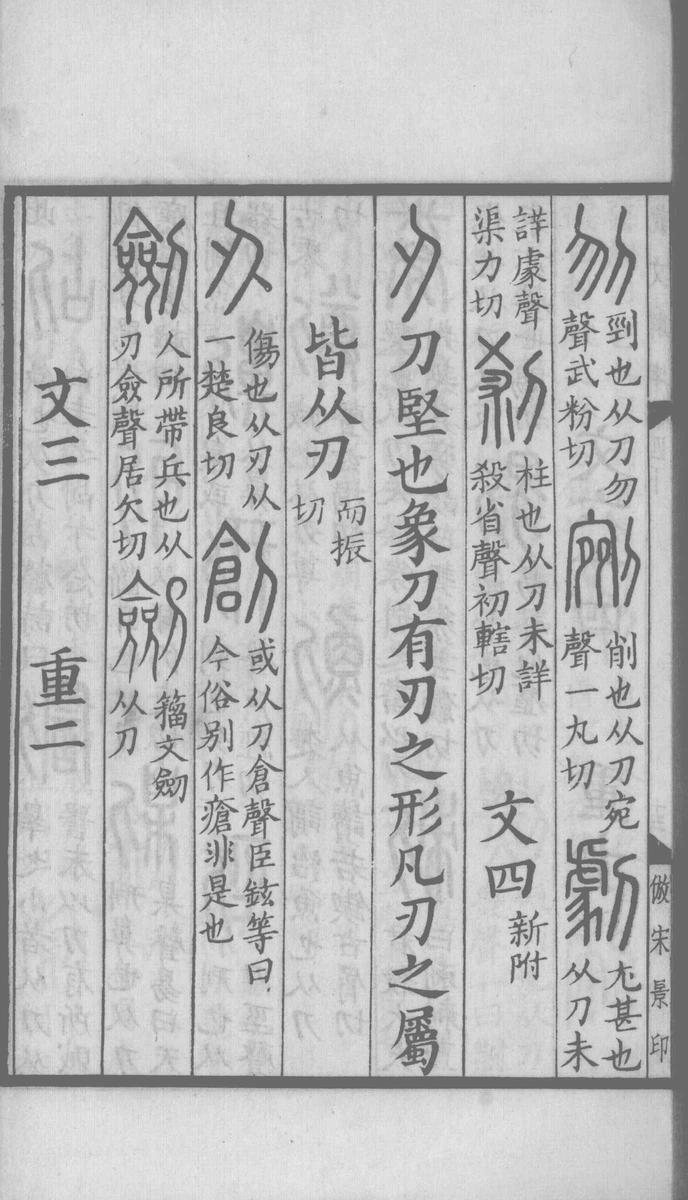 刎 剄也从刀勿聲武粉切 剜 削也从刀宛聲一丸切 劇 尤甚也从刀未
詳豦聲渠力切 刹 柱也从刀未詳殺省聲初轄切 文四 新附
刃 刀堅也象刀有刃之形凡刃之屬
皆从刃 而振切
刅 傷也从刃从一楚良切 創 或从刀倉聲臣鉉等曰今俗別作瘡非是也
劒 人所帶兵也从刃僉聲居欠切 劍 籒文劒从刀
文三 重二
倣宋景印